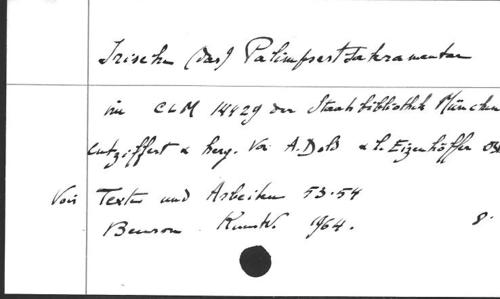 Irische (das) Palimpsestsakramentar
im CLM 14429 der Staatsbibliothek München
entziffert & herg. von A. Dold & L. Eizenhöffer OSB
Voir Texte und Arbeiten 53-54
Beuron Kunstv. 1964. 8°